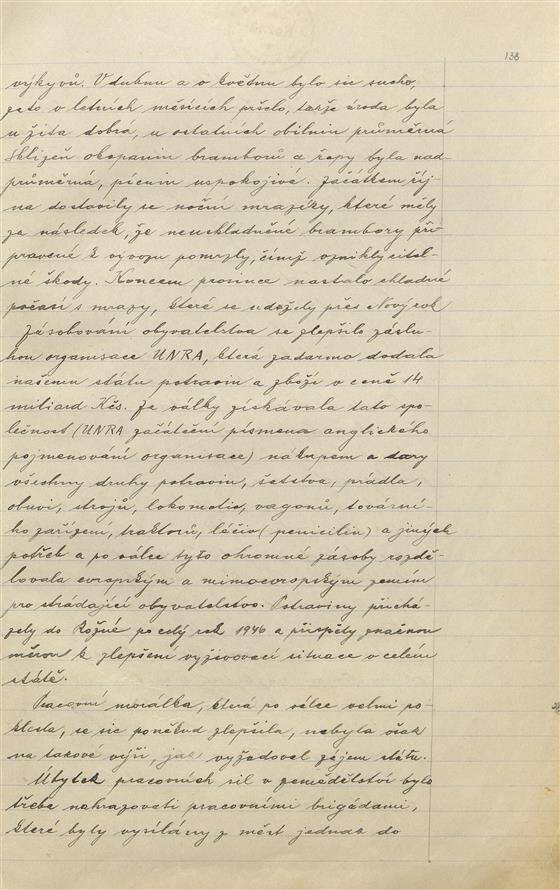 138
výkyvů. V dubnu a v květnu bylo sic sucho,
zato v letních měsících pršelo, takže úroda byla
u žita dobrá, u ostatních obilnin průměrná
Sklizeň okopanin bramborů a řepy byla nad-
průměrná, pícnin uspokojivé. Začátkem říj-
na dostavily se noční mrazíky, které měly
za následek, že neuskladněné brambory při
pravené k vývozu pomrzly, čímž vznikly citel-
né škody. Koncem prosince nastalo chladné
počasí s mrazy, které se udržely přes Nový rok
Zásobování obyvatelstva se zlepšilo záslu-
hou organisace UNRA, která zadarmo dodala
našemu státu potravin a zboží v ceně 14
miliard Kčs. Za války získávala tato spo-
lečnost (UNRA začáteční písmena anglického
pojmenování organisace) nákupem a dary
všechny druhy potravin, šatstva, prádla,
obuvi, strojů, lokomotiv, vagonů, továrni-
ho zařízení, traktorů, léčiv (penicilin) a jiných
potřeb a po válce tyto ohromné zásoby rozdě-
lovala evropským a mimoevropským zemím
pro strádající obyvatelstvo. Potraviny přichá-
zely do Rožné po celý rok 1946 a přispěly značnou
měrou k zlepšení vyživovací situace v celém
státě.
Pracovní morálka, která po válce velmi po-
klesla, se sic poněkud zlepšila, nebyla však
na takové výši, jak vyžadoval zájem státu.
Úbytek pracovních sil v zemědělství bylo
třeba nahrazovati pracovními brigádami,
které byly vysílány z měst jednak do